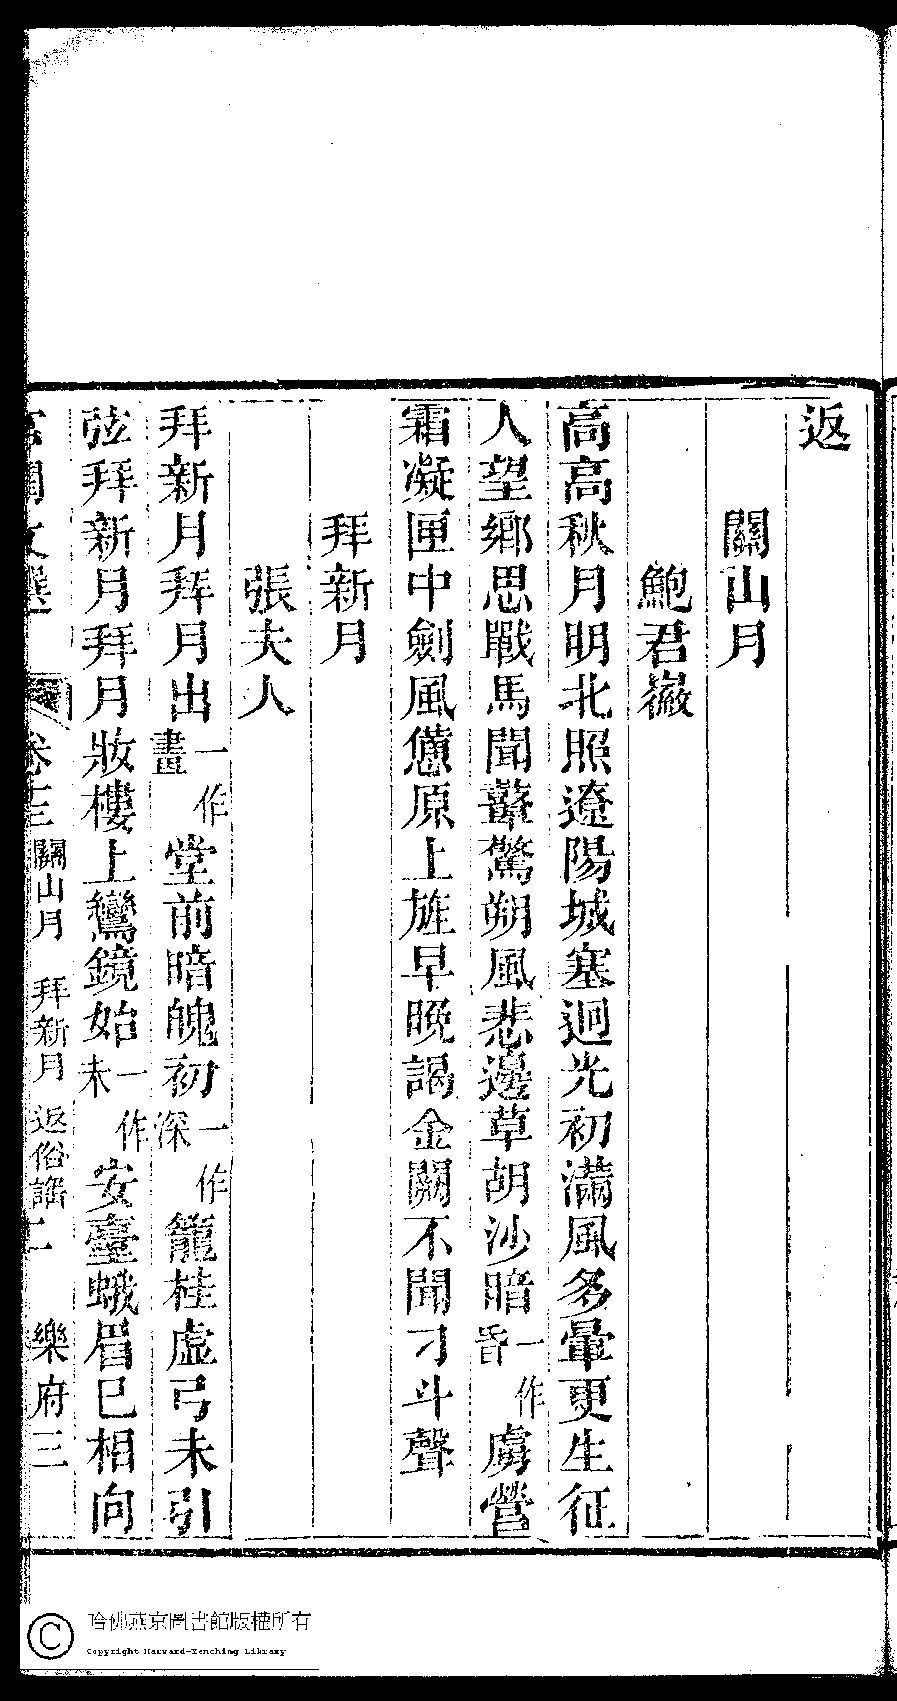 返
關山月
鮑君徽
高高秋月明北照遼陽城塞迥光初滿風多暈更生征
人望鄉思戰馬聞鼙驚朔風悲邊草胡沙暗一作昏虜營
霜凝匣中劍風憊原上旌早晚謁金闕不聞刁斗聲
拜新月
張夫人
拜新月拜月出一作畫堂前暗魄初一作深籠桂虛弓未引
弦拜新月拜月妝樓上鸞鏡始一作未安臺蛾眉已相向
宮閨文選 卷十三 關山月 拜新月 返俗謠 二 樂府三
哈佛燕京圖書館版權所有
Copyright Harvard-Yenching Library